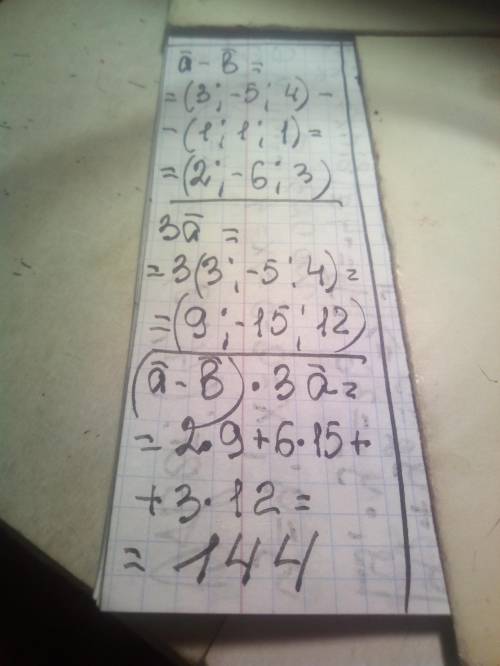 ā - b̄ =
= (3; -5; 4) -
- (1; 1; 1) =
= (2; -6; 3)
3ā =
= 3(3; -5; 4) =
= (9; -15; 12)
(ā - b̄) · 3ā =
= 2·9+6·15+
+3·12=
= 144